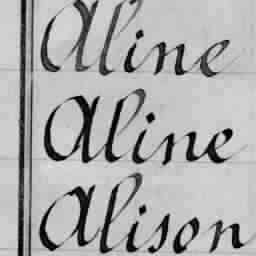 Aline
Aline
Alison